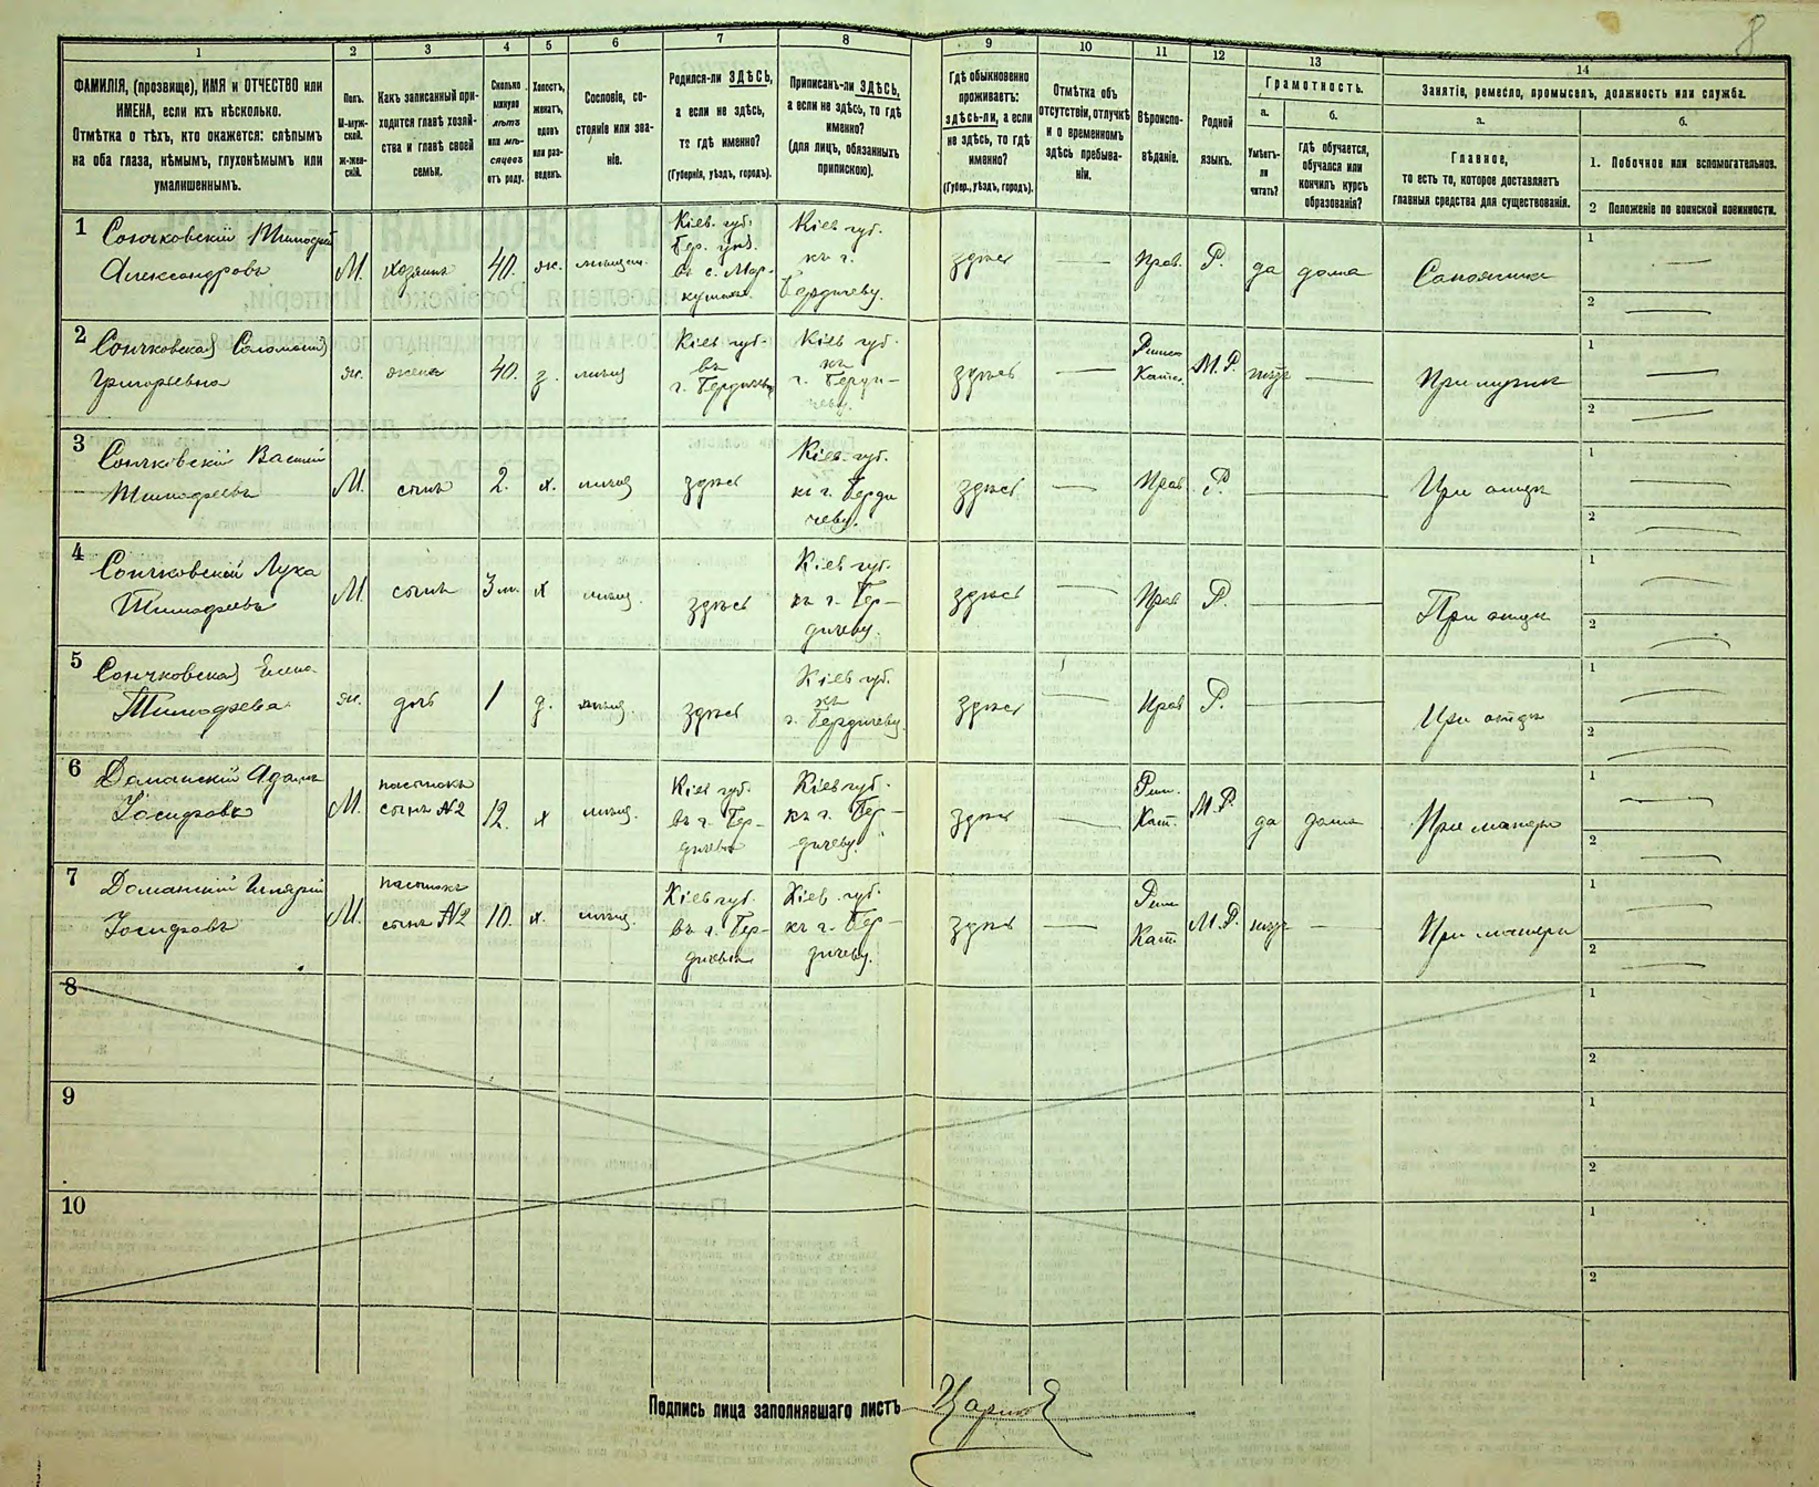 8
1 2 3 4 5 6 7 8 9 10 11 12 13 14
ФАМИЛІЯ, (прозвище), ИМЯ и ОТЧЕСТВО или
ИМЕНА, если ихъ нѣсколько.
Отмѣтка о тѣхъ, кто окажется: слѣпымъ
на оба глаза, нѣмымъ, глухонѣмымъ или
умалишеннымъ.
Полъ.
М-муж-
ской.
Ж-жен-
скій.
Какъ записанный при-
ходится главѣ хозяй-
ства и главѣ своей
семьи.
Сколько
минуло
лѣтъ
или мѣ-
сяцевъ
отъ роду.
Холостъ,
женатъ,
вдовъ
или раз-
веденъ.
Сословіе, со-
стояніе или зва-
ніе.
Родился-ли ЗДѢСЬ,
а если не здѣсь,
то гдѣ именно?
(Губернія, уѣздъ, городъ).
Приписанъ-ли ЗДѢСЬ,
а если не здѣсь, то гдѣ
именно?
(для лицъ, обязанныхъ
припискою).
Гдѣ обыкновенно
проживаетъ:
здѣсь-ли, а если
не здѣсь, то гдѣ
именно?
(Губер., уѣздъ, городъ).
Отмѣтка объ
отсутствіи, отлучкѣ
и о временномъ
здѣсь пребыва-
ніи.
Вѣроиспо-
вѣданіе.
Родной
языкъ.
Грамотность.
а.
Умѣетъ-
ли
читать?
б.
гдѣ обучается,
обучался или
кончилъ курсъ
образованія?
Занятіе, ремесло, промыселъ, должность или служба.
а.
Главное,
то есть то, которое доставляетъ
главныя средства для существованія.
б.
1. Побочное или вспомогательное.
2 Положеніе по воинской повинности.
1
Александровъ
М.
хозяинъ
40.
ж.
мѣщан.
Кіев. губ.
Бер. уѣз.
въ с.
Кіев губ.
къ г.
Бердичеву.
здѣсь
Прав.
Р.
да
дома
Сапожникъ
1 —
2 —
2
Григорьевна
ж.
жена
40.
з.
мѣщ
Кіев губ.
въ
г. Бердичевѣ
Кіев губ.
къ
г. Берди-
чеву.
здѣсь
—
Римск
Катол.
М.Р.
нѣтъ
—
При мужѣ
1 —
2 —
3
Василій
Тимофеевъ
М.
сынъ
2.
х.
мѣщ
здѣсь
Кіев. губ.
къ г. Берди
чеву.
здѣсь
—
Прав
Р.
—
При отцѣ
1 —
2 —
4
Лука
Тимофеевъ
М.
сынъ
3 м.
х
мѣщ.
здѣсь
Кіев губ.
къ г. Бер-
дичеву.
здѣсь
—
Прав
Р.
—
При отцѣ
1 —
2 —
5
Елена
Тимофеева
ж.
дочь
1
д.
мѣщ.
здѣсь
Кіев губ.
къ
г. Бердичеву
здѣсь
—
Прав
Р.
—
При отцѣ
1 —
2 —
6
Доманскій Адамъ
Іосифовъ
М.
пасынокъ
сынъ №2
12.
х
мѣщ.
Кіев губ.
въ г. Бер-
дичевѣ
Кіев губ.
къ г. Бер-
дичеву.
здѣсь
—
Рим.
Кат.
М.Р.
да
дома
При матери
1 —
2 —
7
Доманскій
Іосифовъ
М.
пасынокъ
сынъ №2
10.
х.
мѣщ.
Кіев губ.
въ г. Бер-
дичевѣ
Кіев. губ.
къ г. Бер-
дичеву.
здѣсь
—
Рим
Кат.
М.Р.
нѣтъ
—
При матери
1 —
2 —
8
1
2
9
1
2
10
1
2
Подпись лица заполнявшаго листъ